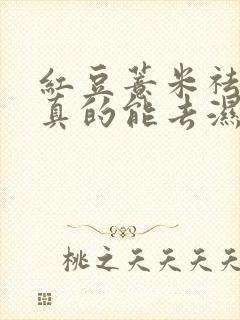 紅豆薏米祛
真的能去濕
桃之夭夭夭夭